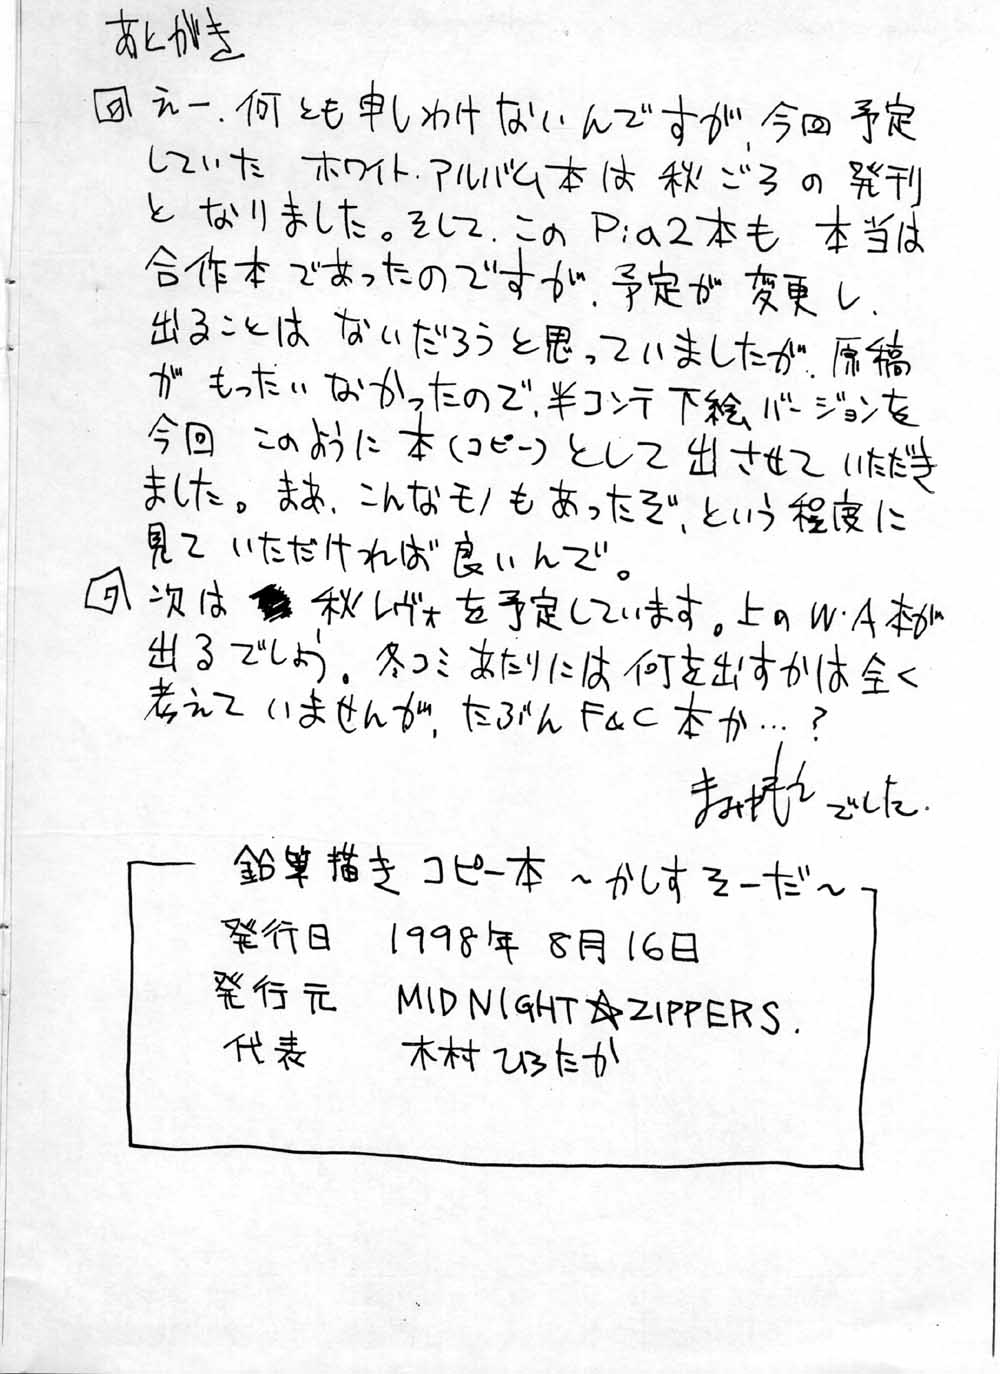 あとがき
えー、何とも申しわけないんですが、今回予定
していた ホワイト・アルバム本は 秋ごろの発刊
となりました。そして、このPia2本も 本当は
合作本であったのですが、予定が変更し、
出ることは ないだろうと思っていましたが、原稿
が もったいなかったので、半コンテ下絵バージョンを
今回 このように本(コピー)として出させていただき
ました。まあ、こんなモノもあったぞ、という程度に
見ていただければ良いんで。
次は 秋レヴォを予定しています。上のW・A本が
出るでしょう。冬コミあたりには何を出すかは全く
考えていませんが、たぶんF&C本か…?
でした.
鉛筆描きコピー本 ~かしすそーだ~
発行日 1998年 8月16日
発行元 MIDNIGHT☆ZIPPERS.
代表 木村ひろたか